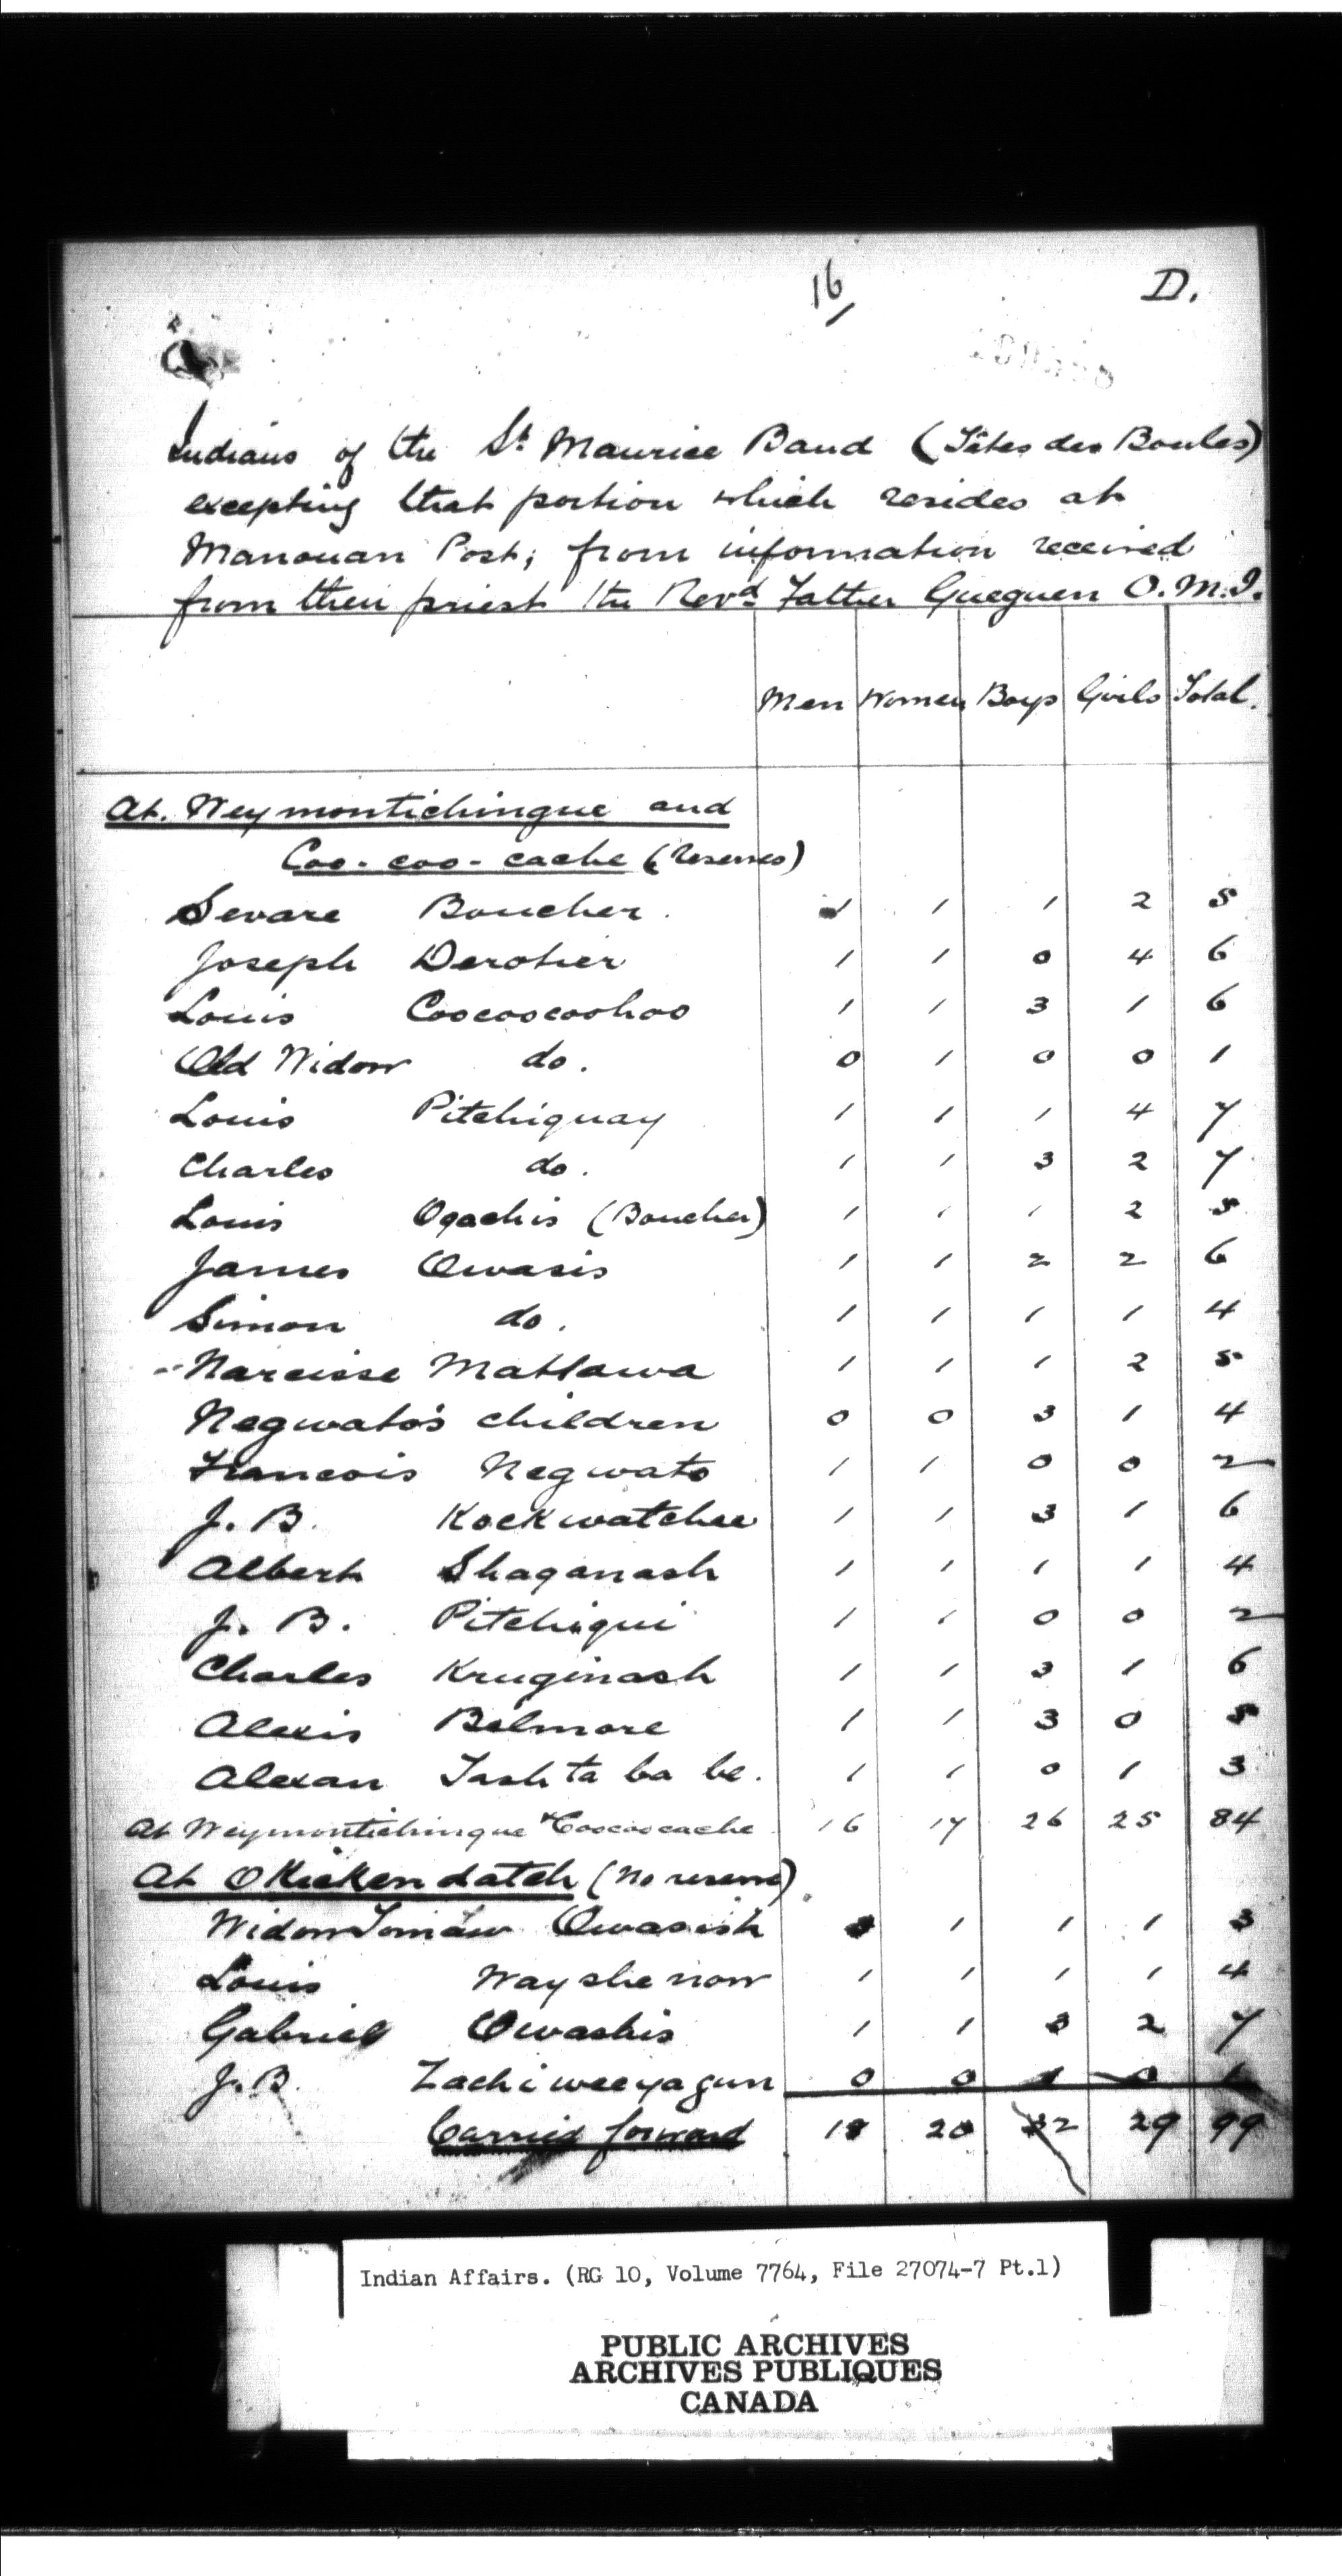 16
D.
Indians of the St. Maurice Band (Têtes des Boules)
excepting that portion which resides at
Manouan Post; from information received
from their priest the Revd. Father Gueguen O.M.I.
Men Women Boys Girls Total.
At. Weymontichingue and
Coo-coo-cache (Reserves)
Sevare Boucher. 1 1 1 2 5
Joseph Derotier 1 1 0 4 6
Louis Coocoocoohoo 1 1 3 1 6
Old Widow do. 0 1 0 0 1
Louis Pitchiquay 1 1 1 4 7
Charles do. 1 1 3 2 7
Louis Ogachis (Boucher) 1 1 1 2 5
James Owasis 1 1 2 2 6
Simon do. 1 1 1 1 4
Narcisse Mattawa 1 1 1 2 5
Negwato's children 0 0 3 1 4
Francois Negwato 1 1 0 0 2
J. B. Kockwatchee 1 1 3 1 6
Albert Shaganash 1 1 1 1 4
J. B. Pitchiqui 1 1 0 0 2
Charles Kruginash 1 1 3 1 6
Alexis Belmore 1 1 3 0 5
Alexan Tash ta ba be. 1 1 0 1 3
At Weymontichingue & Coocoocache 16 17 26 25 84
At Okickendatch (No reserve)
Widow Tomaw Owasish 1 1 1 3
Louis Wayshenow 1 1 1 1 4
Gabriel Owashis 1 1 3 2 7
J. B. Zachiweeyagun 0 0 1 0 1
Carried forward 18 20 32 29 99
Indian Affairs. (RG 10, Volume 7764, File 27074-7 Pt.1)
PUBLIC ARCHIVES
ARCHIVES PUBLIQUES
CANADA